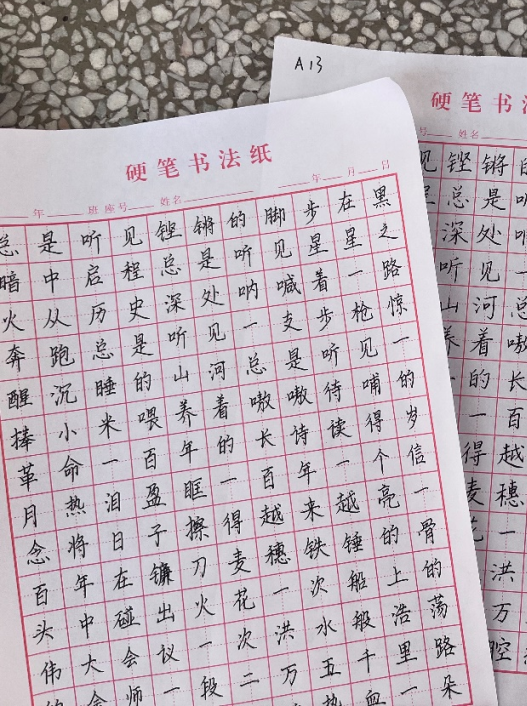 硬笔书法纸
年 班 座号 姓名 年 月 日
总是听见铿锵的脚步在黑
暗中启程总是听见星星之
火从历史深处呐喊着一路
奔跑总是听见一支步枪惊
醒沉睡的山河总是听见一
捧小米喂养着嗷嗷待哺的
革命一百年的长诗读得岁
月热泪盈眶一百年一个信
念将日子擦得越来越亮一
百年在镰刀麦穗铁锤的骨
头中碰出火花一次船上的
伟大会议一次洪水般浩荡
师一段二万五千里路
热血一朵
A13
硬笔书法
号 姓名
见铿锵
总是听
深处
听见一
山河总
养着嗷
的长
一百
得越
麦穗
一
洪
万
腔